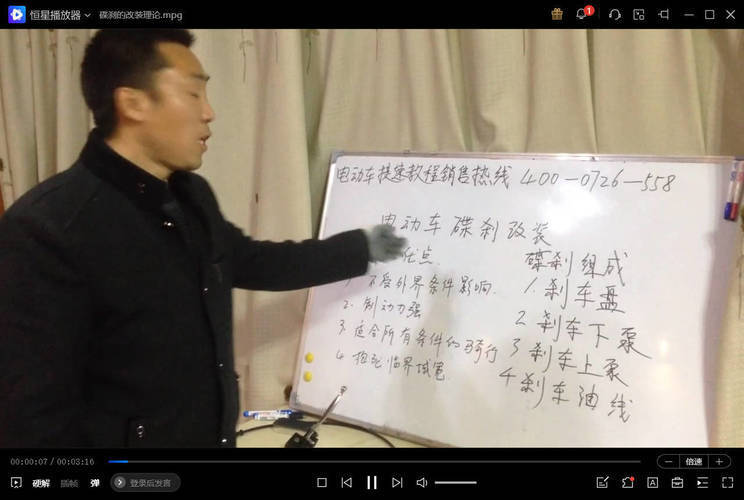 恒星播放器
碟刹的改装理论.mpg
1
电动车提速教程销售热线 400-0726-558
电动车碟刹改装
优点
1 不受外界条件影响
2. 制动力强
3. 适合所有条件的骑行
4.
临界
碟刹组成
1. 刹车盘
2 刹车下泵
3 刹车上泵
4 刹车油线
00:00:07 / 00:03:16
倍速
硬解
插帧
弹
登录后发言